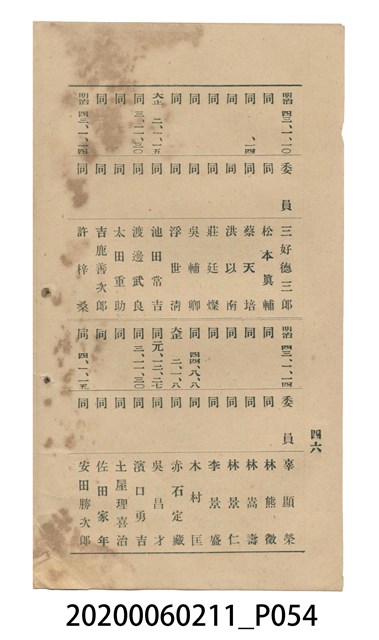 四六
明治四三、一、一〇 委員 三好德三郎
同 同 松本眞輔
同 、一四 同 蔡天培
同 同 洪以南
同 同 莊廷燦
同 同 吳輔卿
同 同 浮世清
大正二、一、一五 同 池田常吉
同三、一一、三〇 同 渡邊武良
同 同 太田重助
同 同 吉鹿善次郎
明治四三、一、一四 同 許梓桑
明治四三、一、一四 委員 辜顯榮
同 同 林熊徵
同 同 林嵩壽
同 同 林景仁
同 同 李景盛
同四四、八、八 同 木村匡
大正二、一、八 同 赤石定藏
同元、一二、二七 同 吳昌才
同三、一一、三〇 同 濱口勇吉
同 同 土屋理喜治
同 同 佐田家年
同四、一、一五 同 安田勝次郎
20200060211_P054